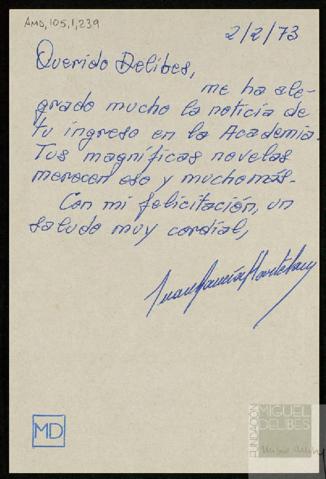 AMD,105,1,239
2/2/73
Querido Delibes,
me ha ale-
grado mucho la noticia de
tu ingreso en la Academia.
Tus magníficas novelas
merecen eso y mucho más.
Con mi felicitación, un
saludo muy cordial,
MD
FUNDACIÓN
MIGUEL
DELIBES